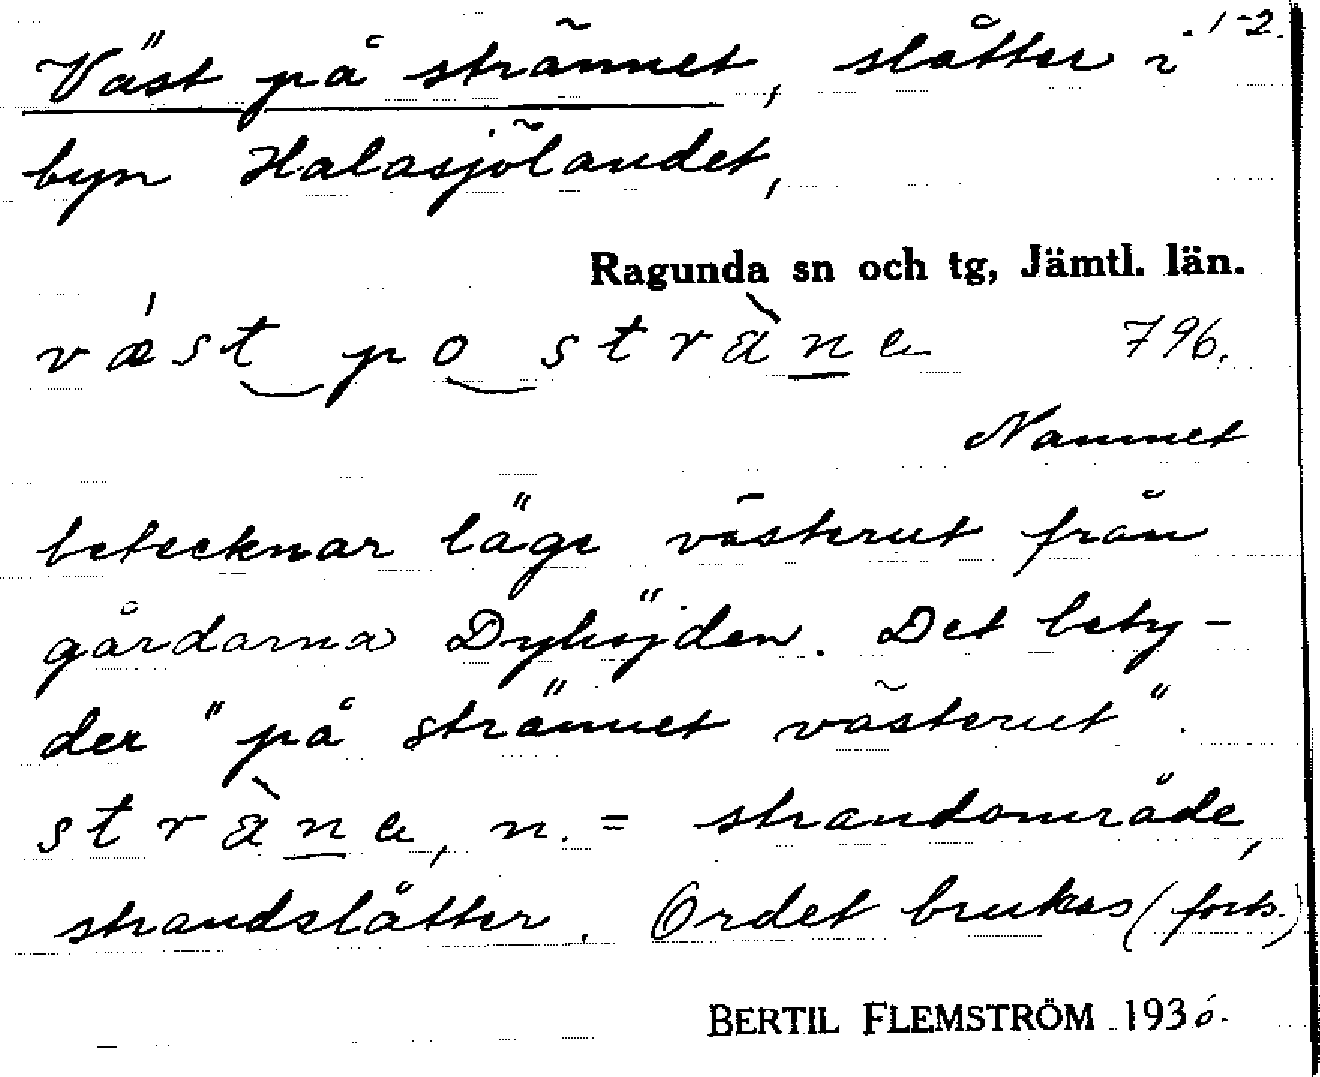 Väst på strännet, slåtter i 1-2.
byn Halasjölandet,
Ragunda sn och tg, Jämtl. län.
væst po stràne 796.
Namnet
betecknar läge västerut från
gårdarna Dyhöjden. Det bety-
der "på strännet västerut".
stràne, n. = strandområde,
strandslåtter. Ordet brukas (forts.)
BERTIL FLEMSTRÖM 1936.